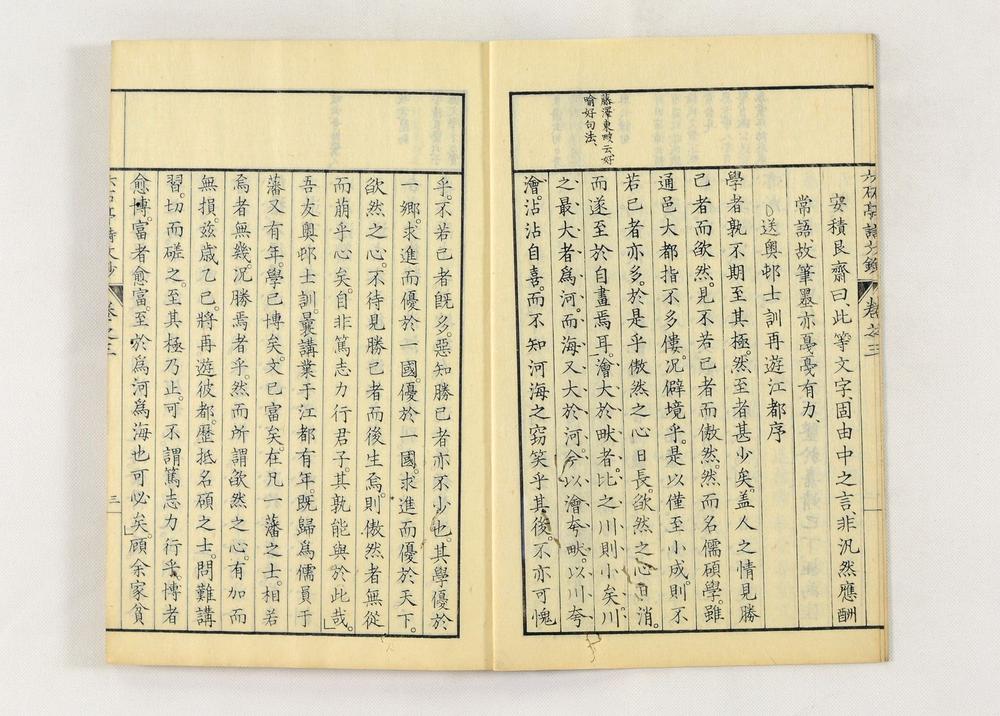 卷之三
安積艮齋曰、此等文字固由中之言、非汎然應酬
常語故筆墨亦亹亹有力、
送奧邨士訓再遊江都序
學者孰不期至其極。然至者甚少矣。蓋人之情見勝
己者而欿然。見不若己者而傲然。然而名儒碩學。雖
通邑大都指不多僂。況僻境乎。是以僅至小成。則不
若己者亦多。於是乎傲然之心日長。欿然之心日消。
而遂至於自畫焉耳。澮大於畎者。比之川則小矣。川
之最大者為河。而海又大於河。今以澮夸畎。以川夸
澮。沾沾自喜。而不知河海之窃笑乎其後。不亦可愧
藤澤東畡云好
喻好句法、
乎。不若己者既多。惡知勝己者亦不少也。其學優於
一鄉。求進而優於一國。優於一國。求進而優於天下。
欿然之心。不待見勝己者而後生焉。則傲然者無從
而萠乎心矣。自非篤志力行君子。其孰能與於此哉。」
吾友奧邨士訓。曩講業于江都有年。既歸為儒員于
藩又有年。學已博矣。文已富矣。在凡一藩之士。相若
焉者無幾。況勝焉者乎。然而所謂欿然之心。有加而
無損。茲歲乙巳。將再遊彼都。歷抵名碩之士。問難講
習。切而磋之。至其極乃止。可不謂篤志力行乎。博者
愈博。富者愈富。至於為河為海也可必矣。」顧余家貧
卷之三
三